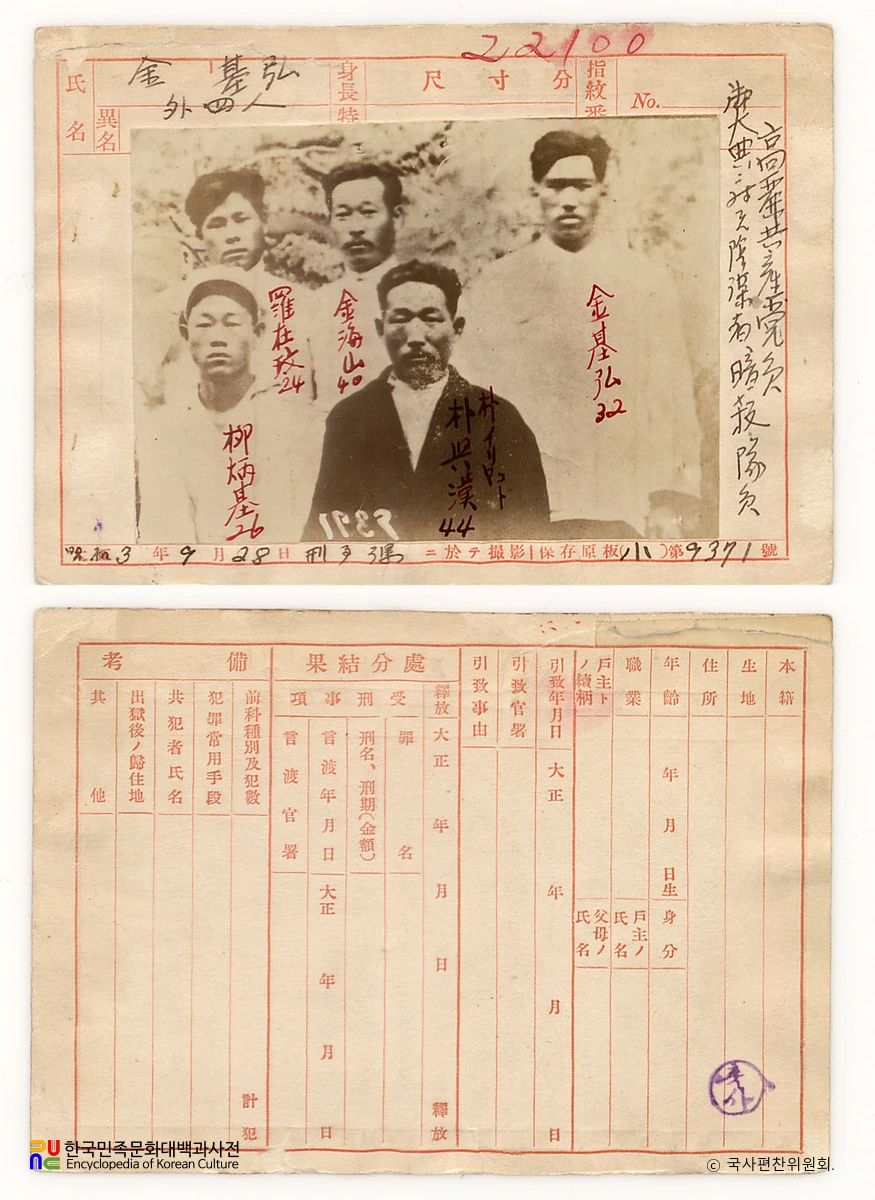 22100
氏名
金基弘
外四人
異名
身長 尺寸分
特
指紋番
No.
高麗共産党員
御大典ニ対スル陰謀者暗殺隊員
羅在玫
24
金海山
40
金基弘
32
柳炳基
26
朴興漢
44
昭和3年9月28日刑事課ニ於テ撮影 保存原板(小)第9371號
本籍
生地
住所
年齢 年月日生
身分
職業
戸主ノ氏名
戸主トノ續柄
父母ノ氏名
引致年月日 大正 年 月 日
引致官署
引致事由
處分結果
釋放 大正 年 月 日 釋放
受刑事項
罪名
刑名、刑期(金額)
言渡年月日 大正 年 月 日
言渡官署
備考
前科種別及犯數 計 犯
犯罪常用手段
共犯者氏名
出獄後ノ歸住地
其他
한국민족문화대백과사전
Encyclopedia of Korean Culture
© 국사편찬위원회.